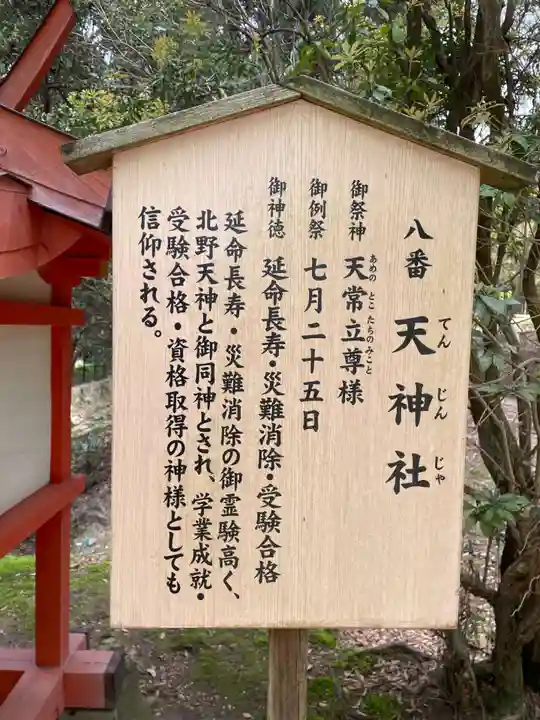 八番 天神社
てん じん じゃ
御祭神 天常立尊様
あめの とこ たちのみこと
御例祭 七月二十五日
御神徳 延命長寿・災難消除・受験合格
延命長寿・災難消除の御霊験高く、
北野天神と御同神とされ、学業成就・
受験合格・資格取得の神様としても
信仰される。